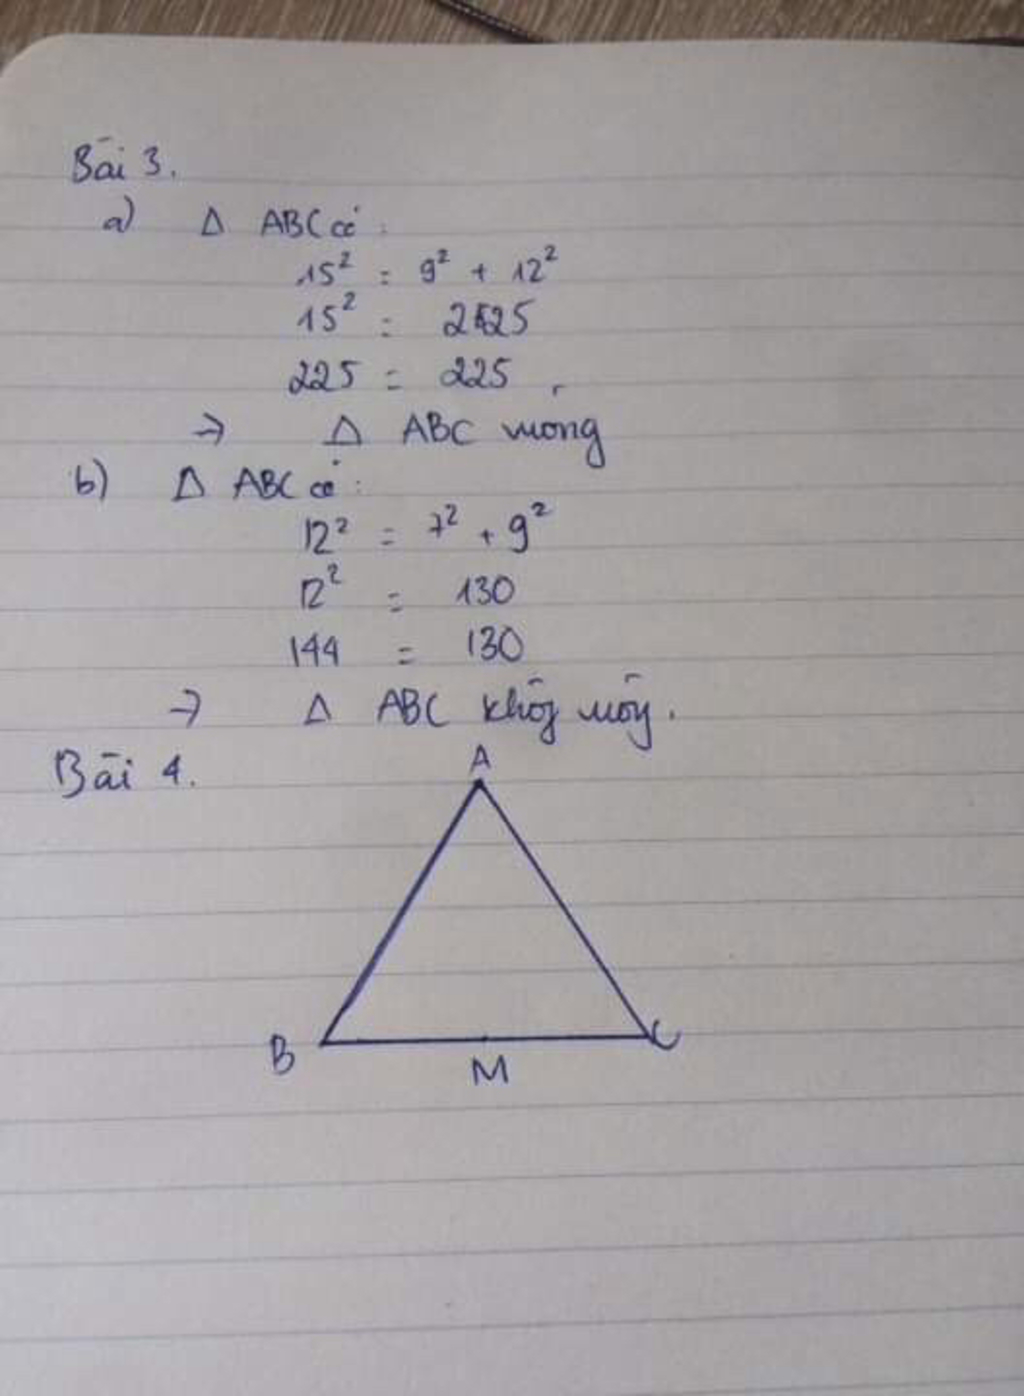 Bài 3.
a) Δ ABC có:
15² = 9² + 12²
15² = 225
225 = 225
→ Δ ABC vuông
b) Δ ABC có:
12² = 7² + 9²
12² = 130
144 = 130
→ Δ ABC không vuông.
Bài 4.
A
B
M
C